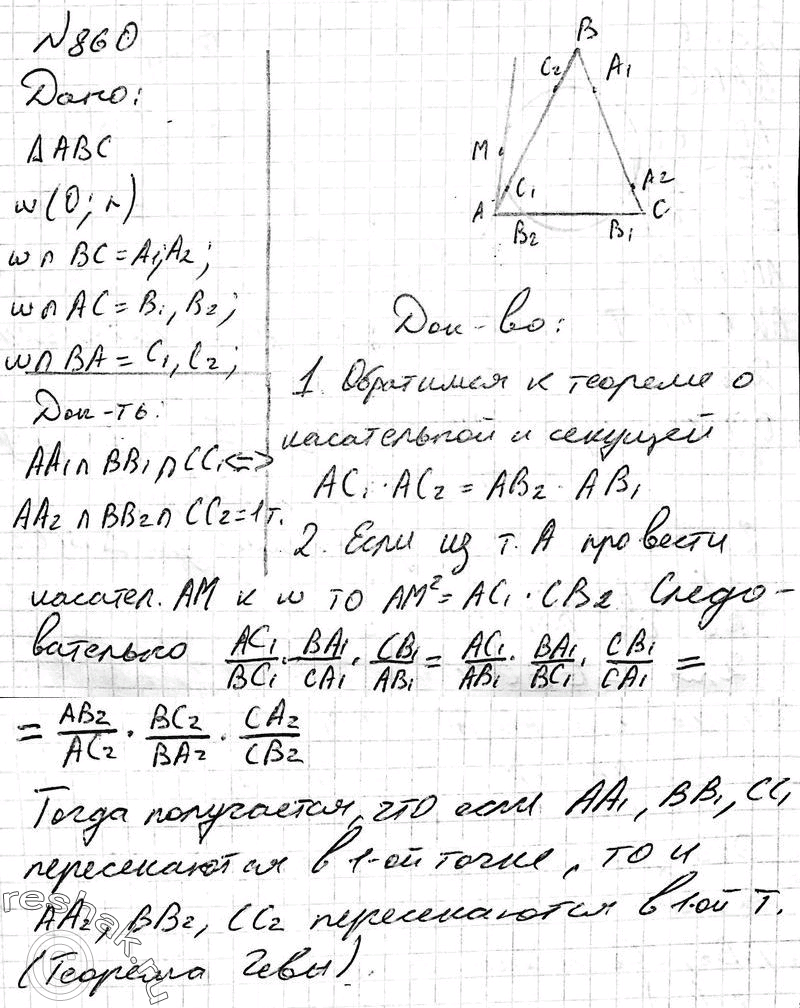 N860
Дано:
ΔABC
w(O; r)
w∩BC = A₁; A₂;
w∩AC = B₁, B₂;
w∩BA = C₁, C₂;
Док-ть:
AA₁∩BB₁∩CC₁<=>
AA₂∩BB₂∩CC₂=1т.
B
C₂ A₁
M
C₁ A₂
A C
B₂ B₁
Док-во:
1. Обратимся к теореме о
касательной и секущей
AC₁·AC₂ = AB₂·AB₁
2. Если из т. A провести
касател. AM к w то AM² = AC₁·CB₂ Следо-
вательно AC₁/BC₁ · BA₁/CA₁ · CB₁/AB₁ = AC₁/AB₁ · BA₁/BC₁ · CB₁/CA₁ =
= AB₂/AC₂ · BC₂/BA₂ · CA₂/CB₂
Тогда получается, что если AA₁, BB₁, CC₁
пересекаются в 1-ой точке, то и
AA₂, BB₂, CC₂ пересекаются в 1-ой т.
(Теорема Чевы)
reshak.ru